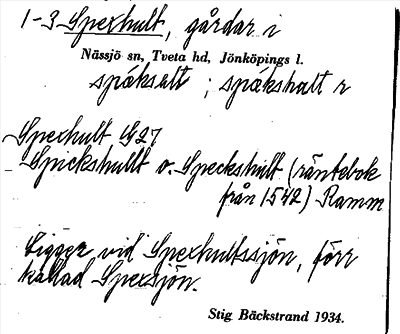 1-3 Spexhult, gårdar i
Nässjö sn, Tveta hd, Jönköpings l.
spáksalt ; spákshalt r
Spexhult 1927
Spickshullt o. Speckshult (räntebok
från 1542) Ramm
Ligger vid Spexhultssjön, förr
kallad Spexsjön.
Stig Bäckstrand 1934.